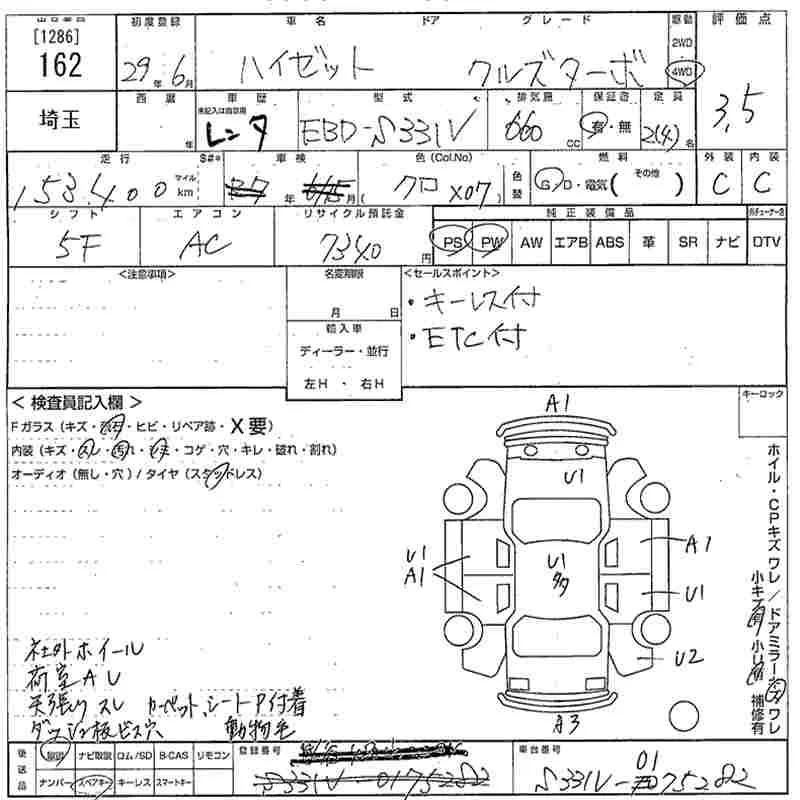 [1286]
162
埼玉
初度登録
29年 6月
車名 ドア グレード
ハイゼット クルーズターボ
駆動
2WD
4WD
評価点
3.5
西暦
年
車歴
未記入は自家用
レンタ
型式
EBD-S331V
排気量
660 cc
保証書
有・無
定員
2(4)名
走行
153,400 マイル km
S#*
車検
年
色(Col.No)
クロ X07
色替
燃料
G/D・電気( その他 )
外装
C
内装
C
シフト
5F
エアコン
AC
リサイクル預託金
7340 円
純正装備品
PS PW AW エアB ABS 革 SR ナビ
DTV
<注意事項>
名変期限
月 日
輸入車
ディーラー・並行
左H ・ 右H
<セールスポイント>
・キーレス付
・ETC付
< 検査員記入欄 >
Fガラス(キズ・飛石・ヒビ・リペア跡・X要)
内装(キズ・スレ・汚れ・・コゲ・穴・キレ・破れ・割れ)
オーディオ(無し・穴)/タイヤ(スタッドレス)
キーロック
A1
U1
U1
A1
U1
多
A1
U1
U2
A3
ホイル・CPキズ ワレ/ドアミラーキズ ワレ
小キズ有 小凹有 補修有
社外ホイール
荷室AU
天張りスレ カーペット、シートP付着
ダッシュ板ビス穴 動物毛
後送品
取説 ナビ取説 ロム/SD B-CAS リモコン
ナンバー スペアキー キーレス スマートキー
登録番号
S331V-0175282
車台番号
01
S331V-0175282